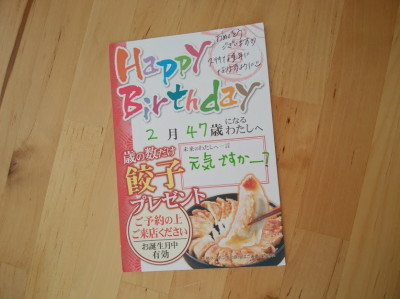 Happy
Birthday
おめでとう
ございます!!
2月 47歳になるわたしへ
歳の数だけ
餃子
プレゼント
未来のわたしへ一言
元気ですかー?
ご予約の上
ご来店ください
お誕生月中
有効